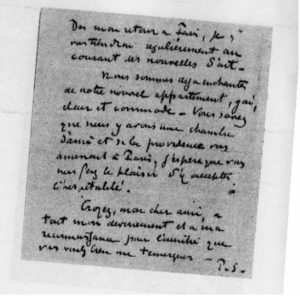 Dès mon retour à Paris, je v
tiendrai régulièrement au
courant des nouvelles d'art –
Nous sommes déjà enchantés
de notre nouvel appartement, gai,
clair et commode – Vous savez
que nous y avons une chambre
d'amis et si la providence vous
amenait à Paris, j'espère que vous
nous ferez le plaisir d'y accepter
l'hospitalité.
Croyez, mon cher ami, à
tout mon dévouement et à ma
reconnaissance pour l'amitié que
vous voulez bien me témoigner – P.S.